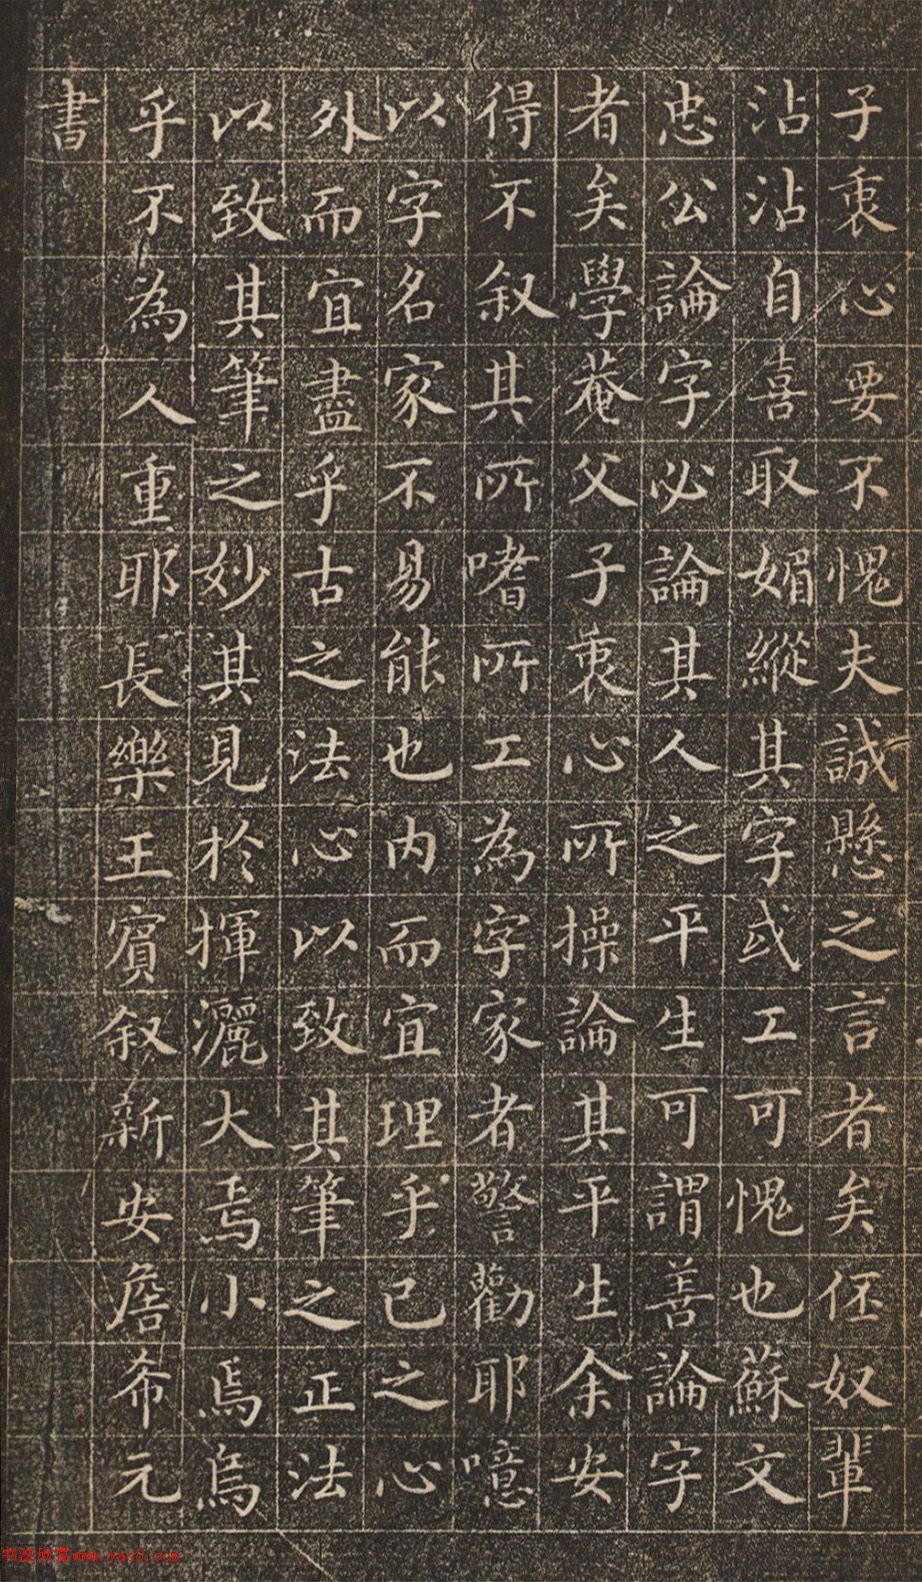 子衷心要不愧夫誠懸之言者矣伾奴輩
沾沾自喜取媚縱其字或工可愧也蘇文
忠公論字必論其人之平生可謂善論字
者矣學菴父子衷心所操論其平生余安
得不叙其所嗜所工為字家者警勸耶噫
以字名家不易能也内而宜理乎己之心
外而宜盡乎古之法心以致其筆之正法
以致其筆之妙其見於揮灑大焉小焉烏
乎不為人重耶長樂王賓叙新安詹希元
書
www.yac8.com